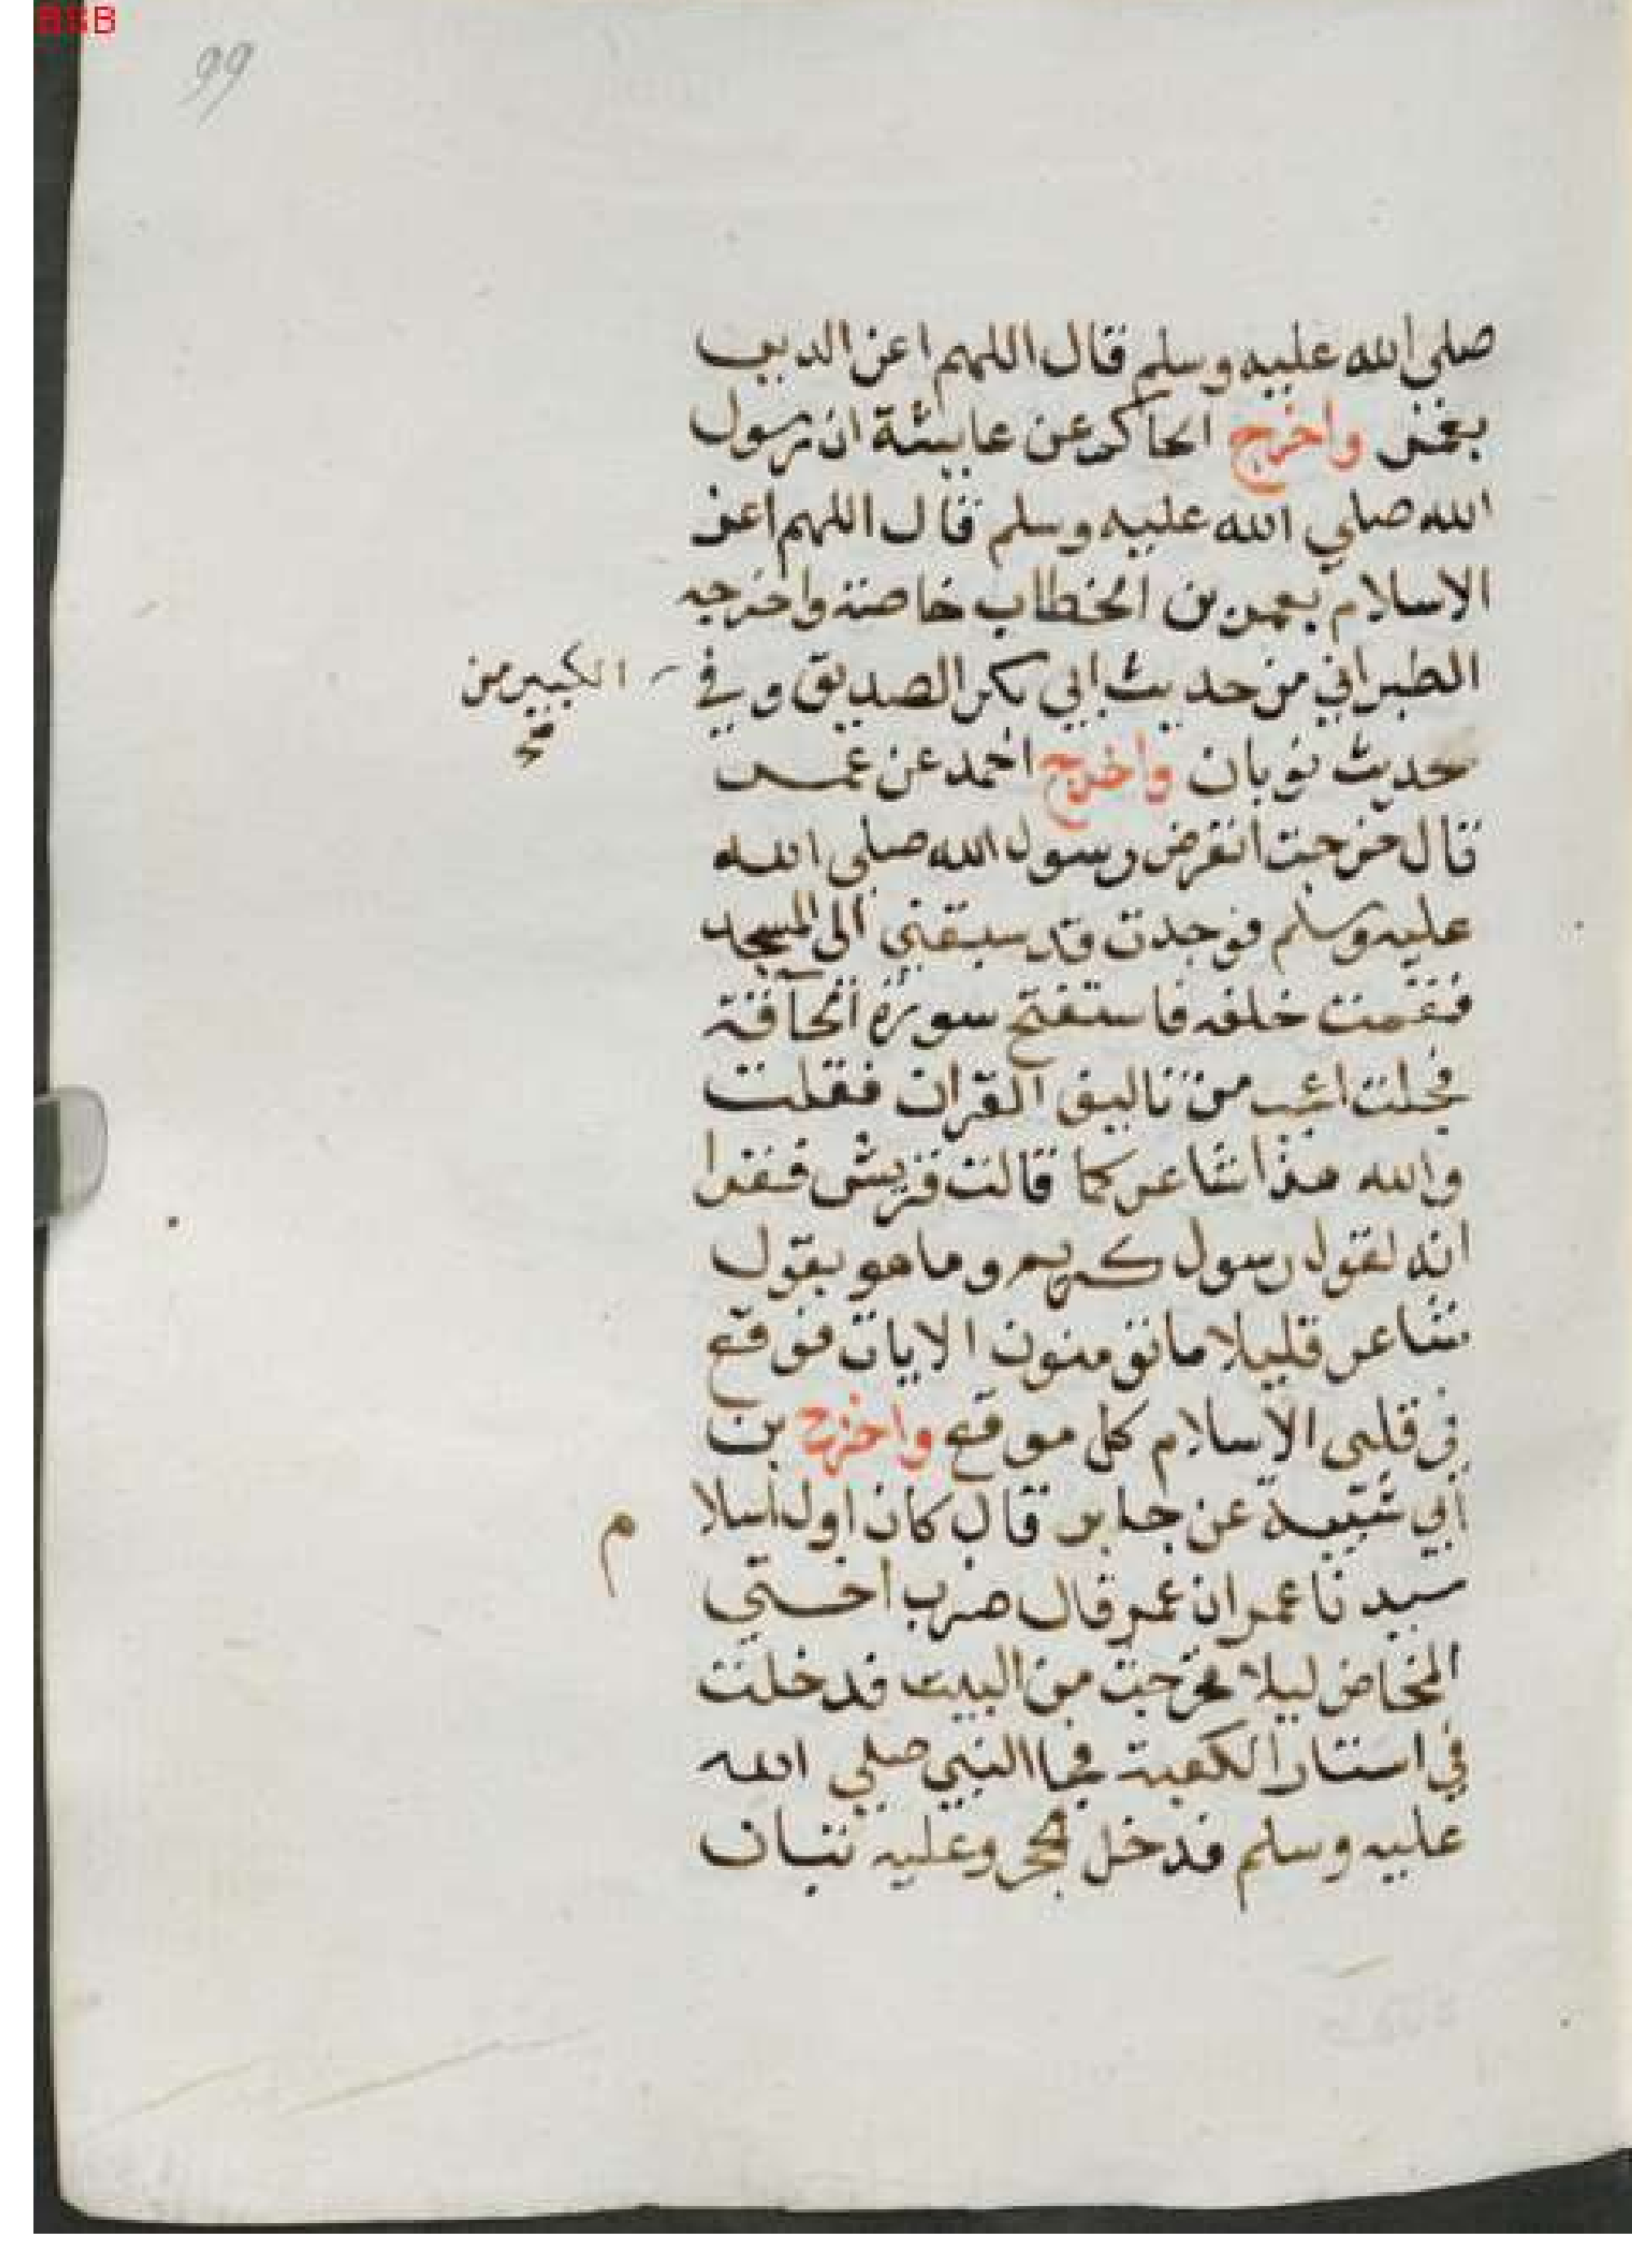 BSB
99
صلي الله عليه وسلم قال اللهم اعز الدين
بعمر واخرج الحاكم عن عايشة ان رسول
الله صلي الله عليه وسلم قال اللهم اعز
الاسلام بعمر بن الخطاب خاصة واخرجه
الطبراني من حديث ابي بكر الصديق وفي
الكبير من
حديث ثوبان واخرج احمد عن عمر
قال خرجت اتعرض رسول الله صلى الله
عليه وسلم فوجدت قد سبقني الى المسجد
فقمت خلفه فاستفتح سورة الحاقة
فجلت اعجب من تاليف القران فقلت
والله هذا شاعر كما قالت قريش فقرا
انه لقول رسول كريم وما هو بقول
شاعر قليلا ما تومنون الايات فوقع
في قلبى الاسلام كل موقع واخرج بن
ابي شيبة عن جابر قال كان اول اسلا
م
سيدنا عمر ان عمر قال ضرب اختي
المخاض ليلا فخرجت من البيت فدخلت
في استار الكعبة فجا النبي صلي الله
عليه وسلم فدخل الحجر وعليه تبان